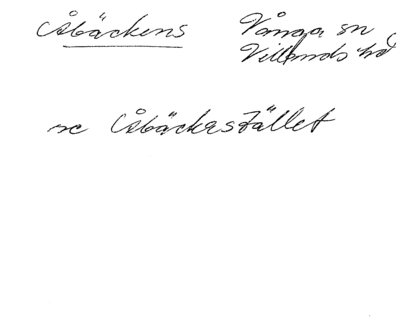 Åbäckens
Vånga sn
Villands hd
se Åbäckastället